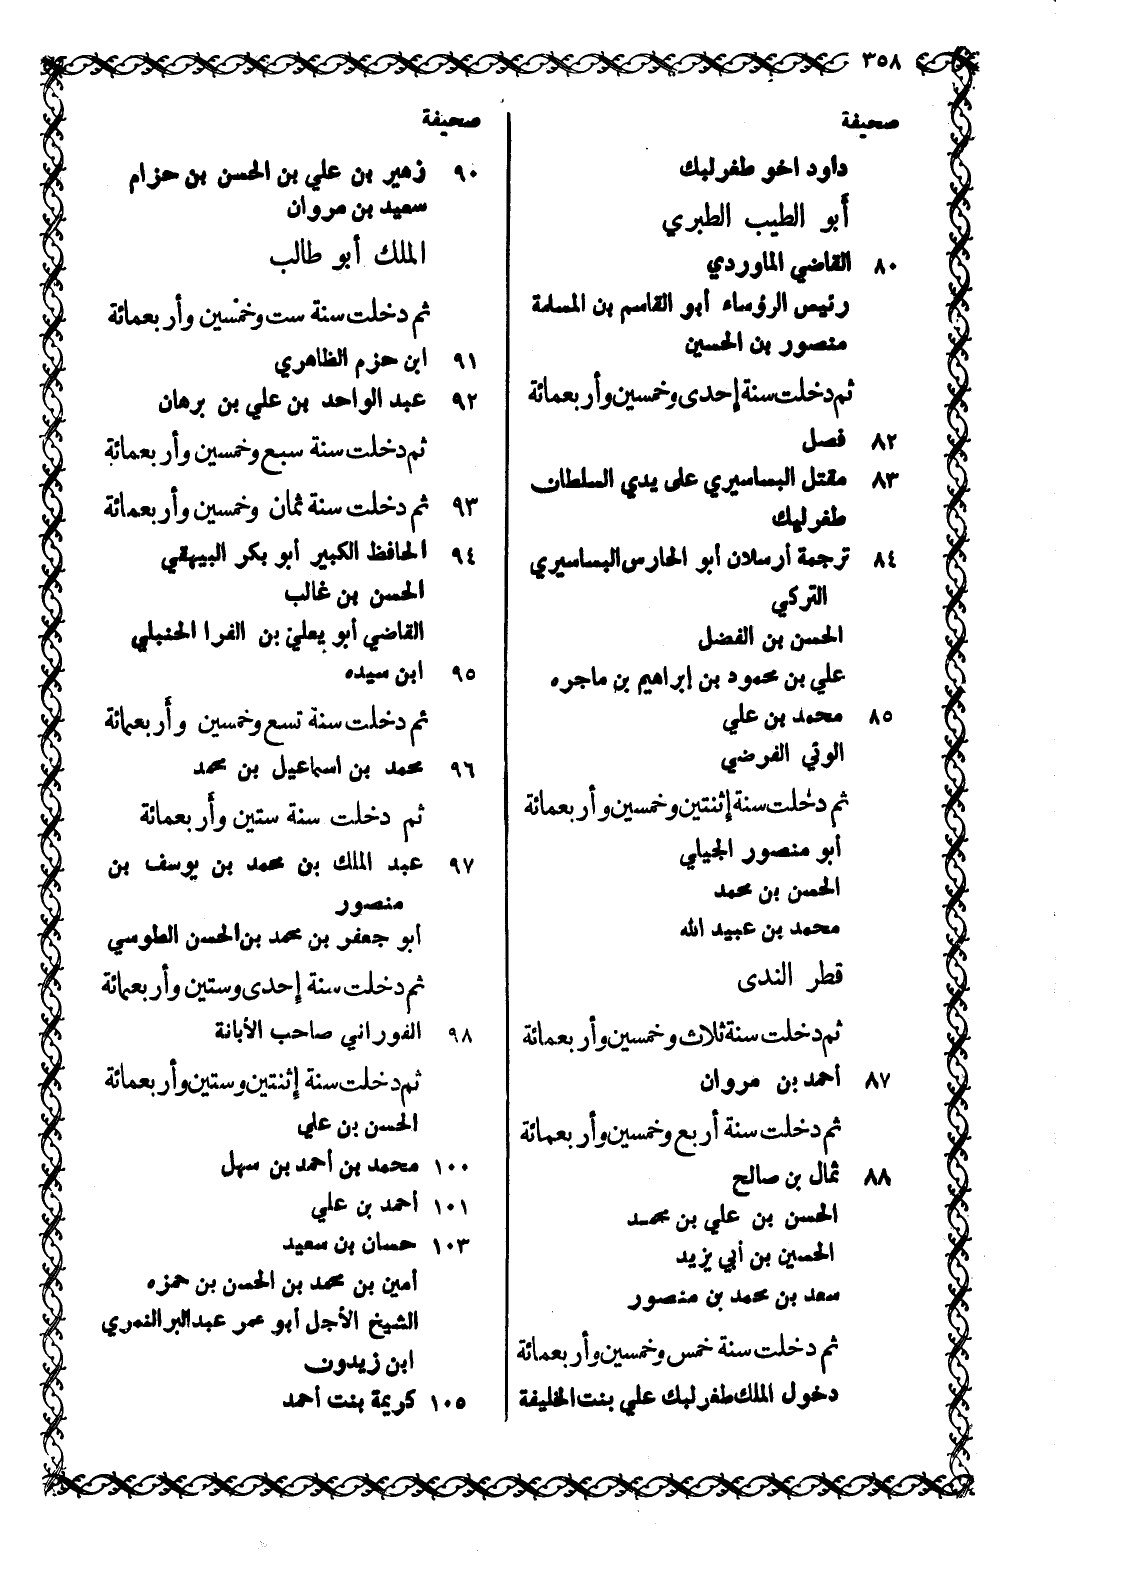 ٣٥٨
صحيفة
داود اخو طغرلبك
أبو الطيب الطبري
٨٠ القاضي الماوردي
رئيس الرؤساء أبو القاسم بن المسلمة
منصور بن الحسين
ثم دخلت سنة إحدى وخمسين وأربعمائة
٨٢ فصل
٨٣ مقتل البساسيري على يدي السلطان
طغرلبك
٨٤ ترجمة أرسلان أبو الحارس البساسيري
التركي
الحسن بن الفضل
علي بن محمود بن إبراهيم بن ماجره
٨٥ محمد بن علي
الوني الفرضي
ثم دخلت سنة إثنتين وخمسين وأربعمائة
أبو منصور الجيلي
الحسن بن محمد
محمد بن عبيد الله
قطر الندى
ثم دخلت سنة ثلاث وخمسين وأربعمائة
٨٧ أحمد بن مروان
ثم دخلت سنة أربع وخمسين وأربعمائة
٨٨ ثمال بن صالح
الحسن بن علي بن محمد
الحسين بن أبي يزيد
سعد بن محمد بن منصور
ثم دخلت سنة خمس وخمسين وأربعمائة
دخول الملك طغرلبك علي بنت الخليفة
صحيفة
٩٠ زهير بن علي بن الحسن بن حزام
سعيد بن مروان
الملك أبو طالب
ثم دخلت سنة ست وخمسين وأربعمائة
٩١ ابن حزم الظاهري
٩٢ عبد الواحد بن علي بن برهان
ثم دخلت سنة سبع وخمسين وأربعمائة
٩٣ ثم دخلت سنة ثمان وخمسين وأربعمائة
٩٤ الحافظ الكبير أبو بكر البيهقي
الحسن بن غالب
القاضي أبو يعلى بن الفرا الحنبلي
٩٥ ابن سيده
ثم دخلت سنة تسع وخمسين وأربعمائة
٩٦ محمد بن اسماعيل بن محمد
ثم دخلت سنة ستين وأربعمائة
٩٧ عبد الملك بن محمد بن يوسف بن
منصور
أبو جعفر بن محمد بن الحسن الطوسي
ثم دخلت سنة إحدى وستين وأربعمائة
٩٨ الفوراني صاحب الأبانة
ثم دخلت سنة إثنتين وستين وأربعمائة
الحسن بن علي
١٠٠ محمد بن أحمد بن سهل
١٠١ أحمد بن علي
١٠٣ حسان بن سعيد
أمين بن محمد بن الحسن بن حمزه
الشيخ الأجل أبو عمر عبد البر النمري
ابن زيدون
١٠٥ كريمة بنت أحمد